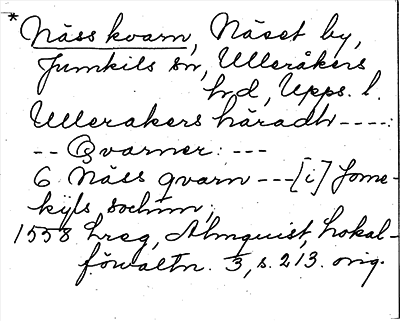 * Näss kvarn, Näset by,
Jumkils sn, Ulleråkers
hd, Upps. l.
Ullerakers häradh ----:
-- Qvarner: ---
6 Näss qvarn --- [i] Jome-
kijls sochnn;
1558 hreg, Almquist, Lokal-
förvaltn. 3, s. 213. orig.